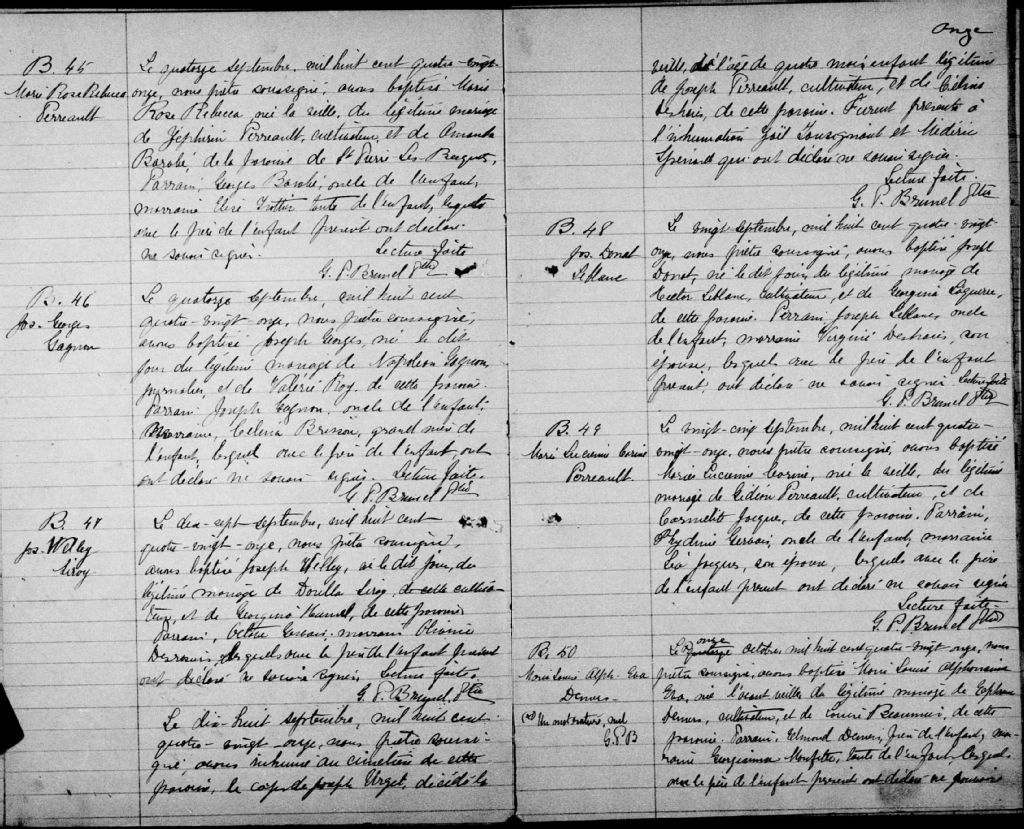 B. 45
Marie Rose Rebecca
Perreault
Le quatorze septembre, mil huit cent quatre-vingt-
onze, nous prêtre soussigné, avons baptisé Marie
Rose Rebecca née la veille, du légitime mariage
de Zéphirin Perreault, cultivateur, et de Amanda
de la paroisse de St Pierre Les Becquets,
Parrain, Georges oncle de l'enfant,
marraine tante de l'enfant, lesquels
avec le père de l'enfant présent ont déclaré
ne savoir signer. Lecture faite
G. P. Brunel Ptre
B. 46
Jos. Georges
Gagnon
Le quatorze septembre, mil huit cent
quatre-vingt onze, nous prêtre soussigné,
avons baptisé Joseph Georges, né le dit
jour du légitime mariage de Napoléon Gagnon,
journalier, et de Valérie Roy, de cette paroisse.
Parrain Joseph Gagnon, oncle de l'enfant,
Marraine, Celina Brisson, grand mère de
l'enfant, lesquels avec le père de l'enfant, ont
ont déclaré ne savoir signer. Lecture faite.
G. P. Brunel Ptre
B. 47
Jos. Welley
Siroy
Le dix-sept septembre, mil huit cent
quatre-vingt-onze, nous prêtre soussigné,
avons baptisé Joseph Welley, né le dit jour, du
légitime mariage de Siroy, de cette cultiva-
teur, et de Georgina Hamel, de cette paroisse
Parrain, Gervais, marraine
lesquels avec le père de l'enfant présent
ont déclaré ne savoir signer. Lecture faite.
G. P. Brunel Ptre
Le dix-huit septembre, mil huit cent-
quatre-vingt-onze, nous, prêtre soussi-
gné, avons inhumé au cimetière de cette
paroisse, le corps de Joseph décédé la
onze
veille, à l'âge de quatre mois enfant légitime
de Joseph Perreault, cultivateur, et de Célina
Deshaies, de cette paroisse. Furent présents à
l'inhumation Joël Tousignant et Médéric
Spénard qui ont déclaré ne savoir signer.
Lecture faite.
G. P. Brunel Ptre
B. 48
Jos. Donat
Leblanc
Le vingt septembre, mil huit cent quatre-vingt-
onze, nous prêtre soussigné, avons baptisé Joseph
Donat, né le dit jour, du légitime mariage de
Hector Leblanc, cultivateur, et de Georgina Laguerre,
de cette paroisse. Parrain Joseph Leblanc, oncle
de l'enfant, marraine Virginie Deshaies, son
épouse, lesquels avec le père de l'enfant
présent, ont déclaré ne savoir signer. Lecture faite
G. P. Brunel Ptre
B. 49
Marie Lucienne Corine
Perreault.
Le vingt-cinq septembre, mil huit cent quatre-
vingt-onze, nous prêtre soussigné, avons baptisé
Marie Lucienne Corine, née la veille, du légitime
mariage de Gédéon Perreault, cultivateur, et de
Carmelite Jacques, de cette paroisse. Parrain,
Gervais, oncle de l'enfant, marraine
Léa Jacques, son épouse, lesquels avec le père
de l'enfant présent ont déclaré ne savoir signer
Lecture faite.
G. P. Brunel Ptre
B. 50
Marie Louise Alph. Eva
Demers.
Un mot raturé, nul
G.P.B
onze
Le quatorze octobre, mil huit cent quatre-vingt onze, nous
prêtre soussigné, avons baptisé Marie Louise Alphonsine
Eva, née l'avant veille du légitime mariage de Ephrem
Demers, cultivateur, et de Louise Beaumier, de cette
paroisse. Parrain, Edmond Demers, frère de l'enfant, mar-
raine Georgianna tante de l'enfant lesquels
avec le père de l'enfant présents ont déclaré ne pouvoir